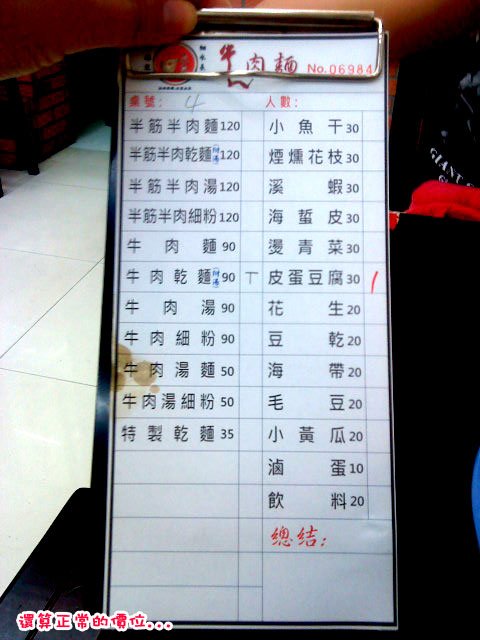 牛肉麵 No.06984
桌號: 4 人數:
半筋半肉麵120 小魚干30
半筋半肉乾麵附湯120 煙燻花枝30
半筋半肉湯120 溪蝦30
半筋半肉細粉120 海蜇皮30
牛肉麵90 燙青菜30
牛肉乾麵附湯90 丅 皮蛋豆腐30 1
牛肉湯90 花生20
牛肉細粉90 豆乾20
牛肉湯麵50 海帶20
牛肉湯細粉50 毛豆20
特製乾麵35 小黃瓜20
滷蛋10
飲料20
總結:
還算正常的價位...